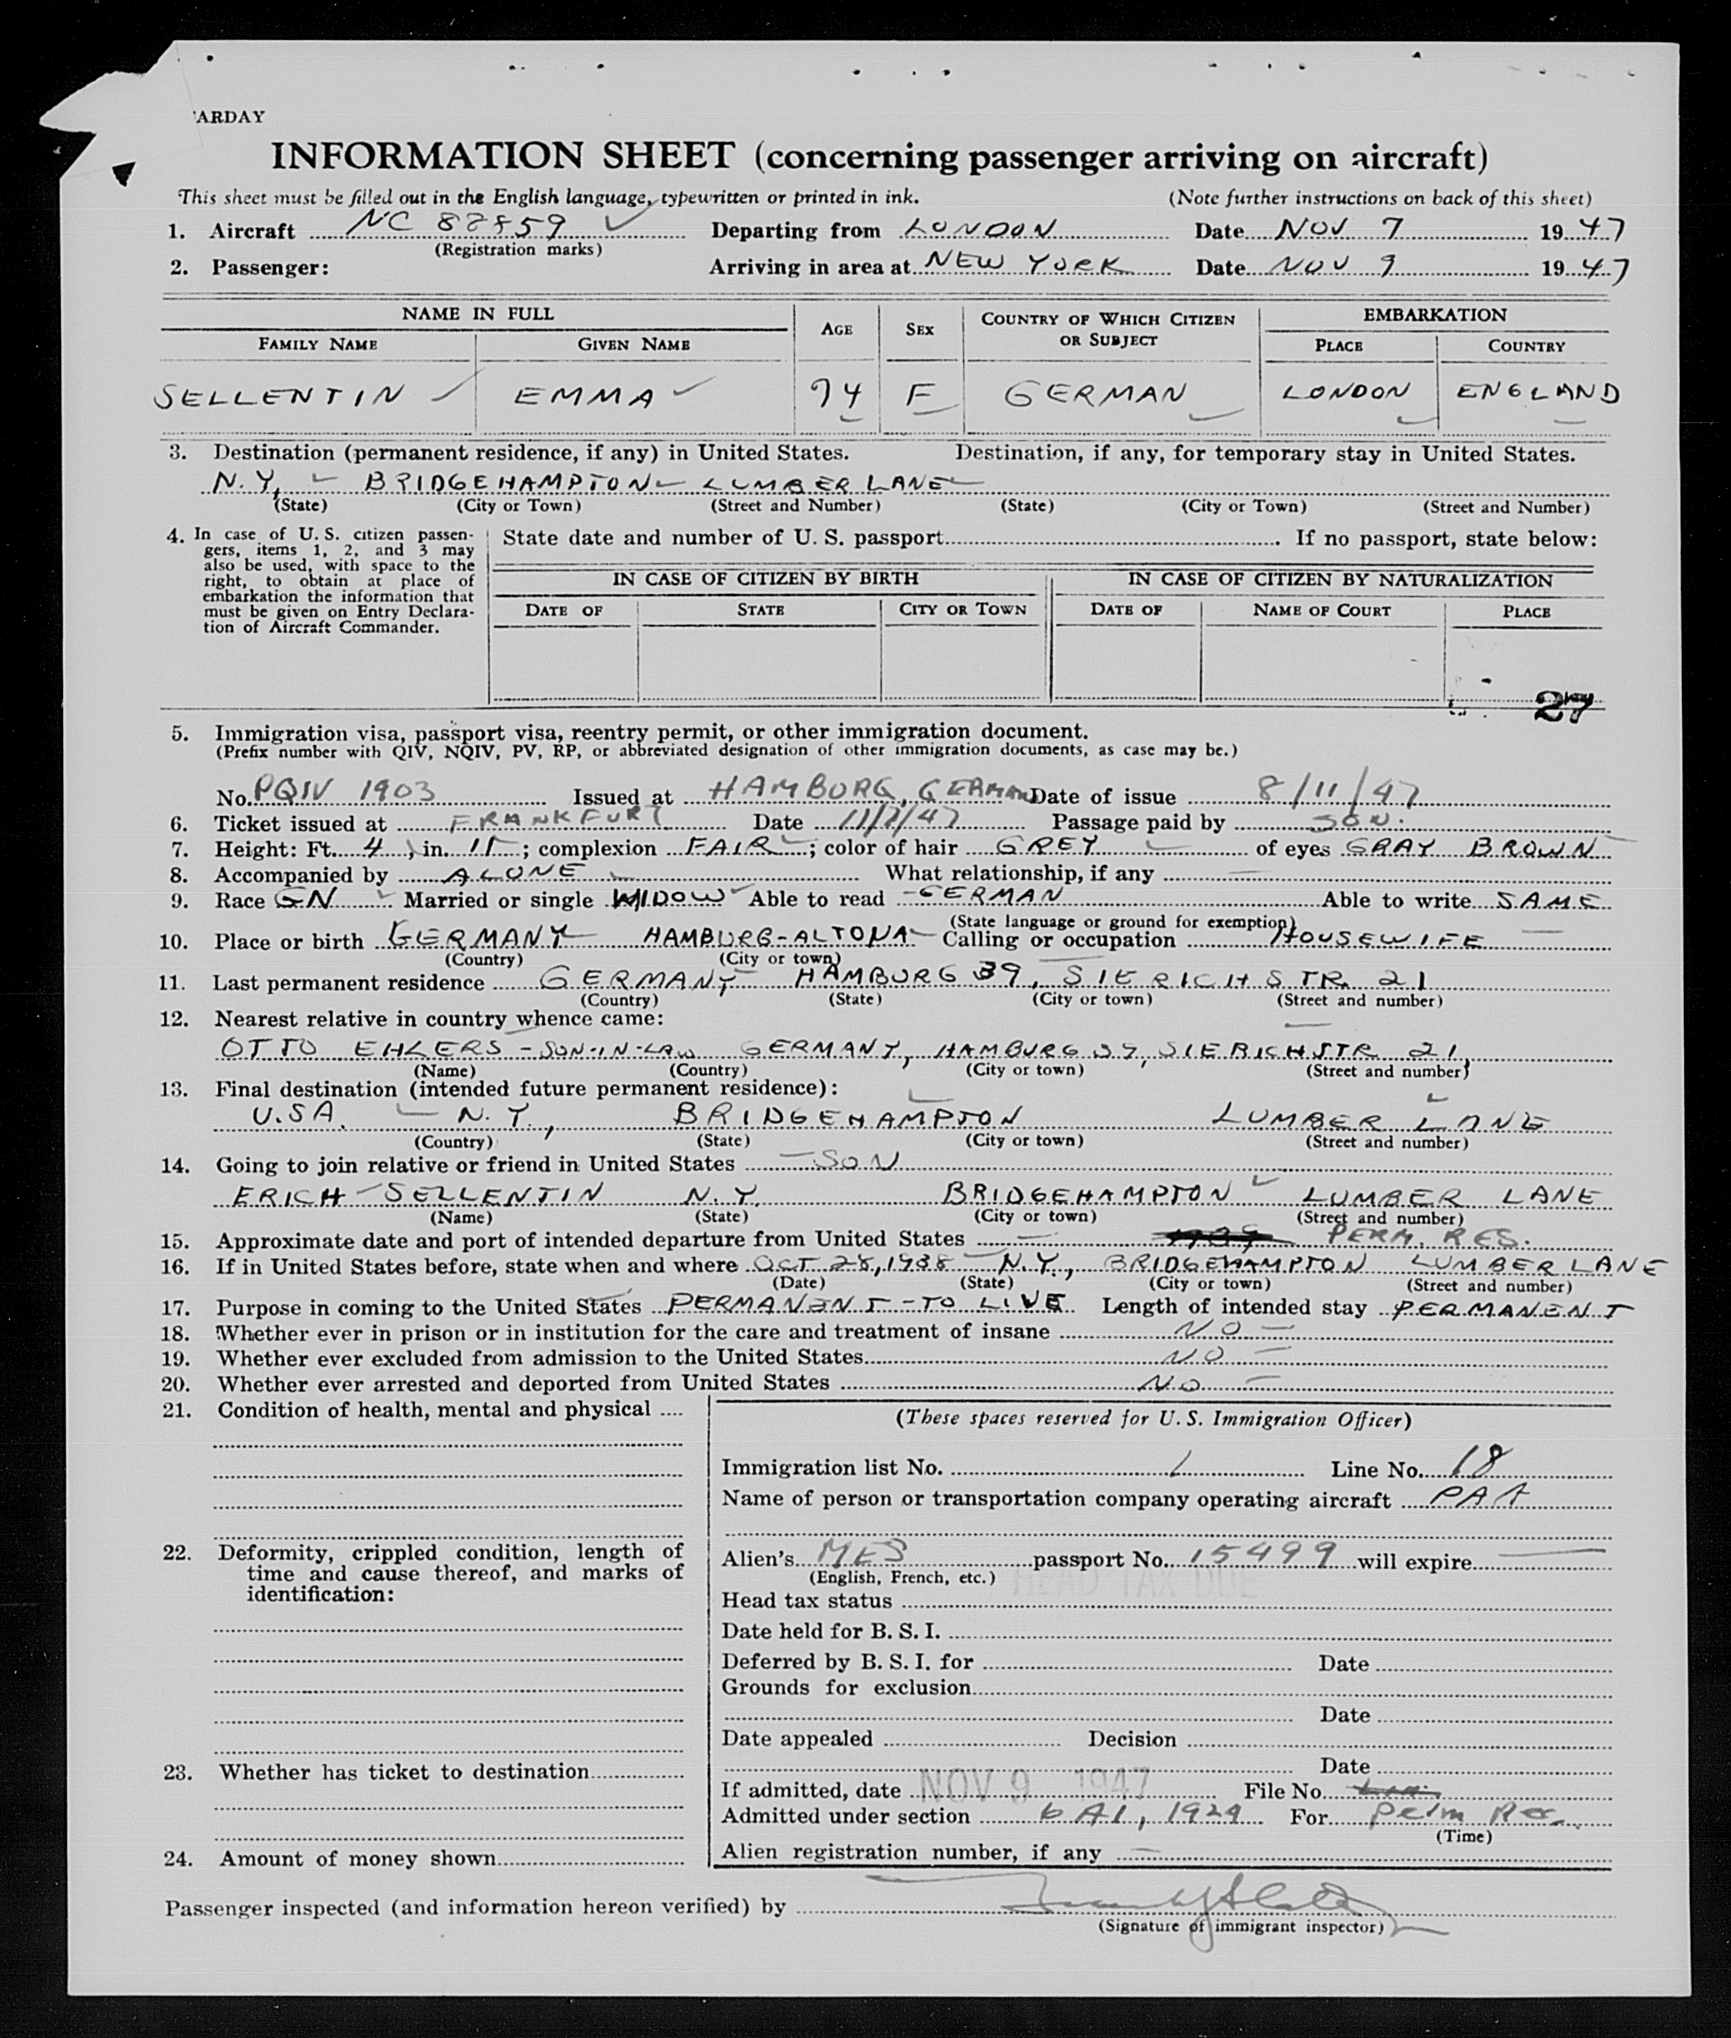 ARDAY
INFORMATION SHEET (concerning passenger arriving on aircraft)
This sheet must be filled out in the English language, typewritten or printed in ink. (Note further instructions on back of this sheet)
1. Aircraft NC 88859 Departing from LONDON Date NOV 7 1947
(Registration marks)
2. Passenger: Arriving in area at NEW YORK Date NOV 9 1947
NAME IN FULL AGE SEX COUNTRY OF WHICH CITIZEN OR SUBJECT EMBARKATION
FAMILY NAME GIVEN NAME PLACE COUNTRY
SELLENTIN EMMA 74 F GERMAN LONDON ENGLAND
3. Destination (permanent residence, if any) in United States. Destination, if any, for temporary stay in United States.
N.Y. BRIDGEHAMPTON LUMBER LANE
(State) (City or Town) (Street and Number) (State) (City or Town) (Street and Number)
4. In case of U. S. citizen passen-
gers, items 1, 2, and 3 may
also be used, with space to the
right, to obtain at place of
embarkation the information that
must be given on Entry Declara-
tion of Aircraft Commander.
State date and number of U. S. passport. If no passport, state below:
IN CASE OF CITIZEN BY BIRTH IN CASE OF CITIZEN BY NATURALIZATION
DATE OF STATE CITY OR TOWN DATE OF NAME OF COURT PLACE
27
5. Immigration visa, passport visa, reentry permit, or other immigration document.
(Prefix number with QIV, NQIV, PV, RP, or abbreviated designation of other immigration documents, as case may be.)
No. PQIV 1903 Issued at HAMBURG, GERMAN Date of issue 8/11/47
6. Ticket issued at FRANKFURT Date 11/7/47 Passage paid by SON.
7. Height: Ft. 4, in. 11; complexion FAIR; color of hair GREY of eyes GRAY BROWN
8. Accompanied by ALONE What relationship, if any —
9. Race GN Married or single WIDOW Able to read GERMAN Able to write SAME
(State language or ground for exemption)
10. Place or birth GERMANY HAMBURG-ALTONA Calling or occupation HOUSEWIFE
(Country) (City or town)
11. Last permanent residence GERMANY HAMBURG 39, SIERICHSTR. 21
(Country) (State) (City or town) (Street and number)
12. Nearest relative in country whence came:
OTTO EHLERS - SON-IN-LAW GERMANY, HAMBURG 39, SIERICHSTR 21,
(Name) (Country) (City or town) (Street and number)
13. Final destination (intended future permanent residence):
U.S.A. N.Y., BRIDGEHAMPTON LUMBER LANE
(Country) (State) (City or town) (Street and number)
14. Going to join relative or friend in United States SON
ERICH SELLENTIN N.Y. BRIDGEHAMPTON LUMBER LANE
(Name) (State) (City or town) (Street and number)
15. Approximate date and port of intended departure from United States — PERM. RES.
16. If in United States before, state when and where OCT 28, 1938 N.Y., BRIDGEHAMPTON LUMBER LANE
(Date) (State) (City or town) (Street and number)
17. Purpose in coming to the United States PERMANENT - TO LIVE Length of intended stay PERMANENT
18. Whether ever in prison or in institution for the care and treatment of insane NO
19. Whether ever excluded from admission to the United States NO
20. Whether ever arrested and deported from United States NO
21. Condition of health, mental and physical
22. Deformity, crippled condition, length of
time and cause thereof, and marks of
identification:
23. Whether has ticket to destination
24. Amount of money shown
(These spaces reserved for U. S. Immigration Officer)
Immigration list No. 1 Line No. 18
Name of person or transportation company operating aircraft PAA
Alien's MES passport No. 15499 will expire —
(English, French, etc.)
HEAD TAX DUE
Head tax status
Date held for B. S. I.
Deferred by B. S. I. for Date
Grounds for exclusion
Date
Date appealed Decision
Date
If admitted, date NOV 9 1947 File No.
Admitted under section 6 A1, 1924 For Perm Res.
(Time)
Alien registration number, if any —
Passenger inspected (and information hereon verified) by
(Signature of immigrant inspector)